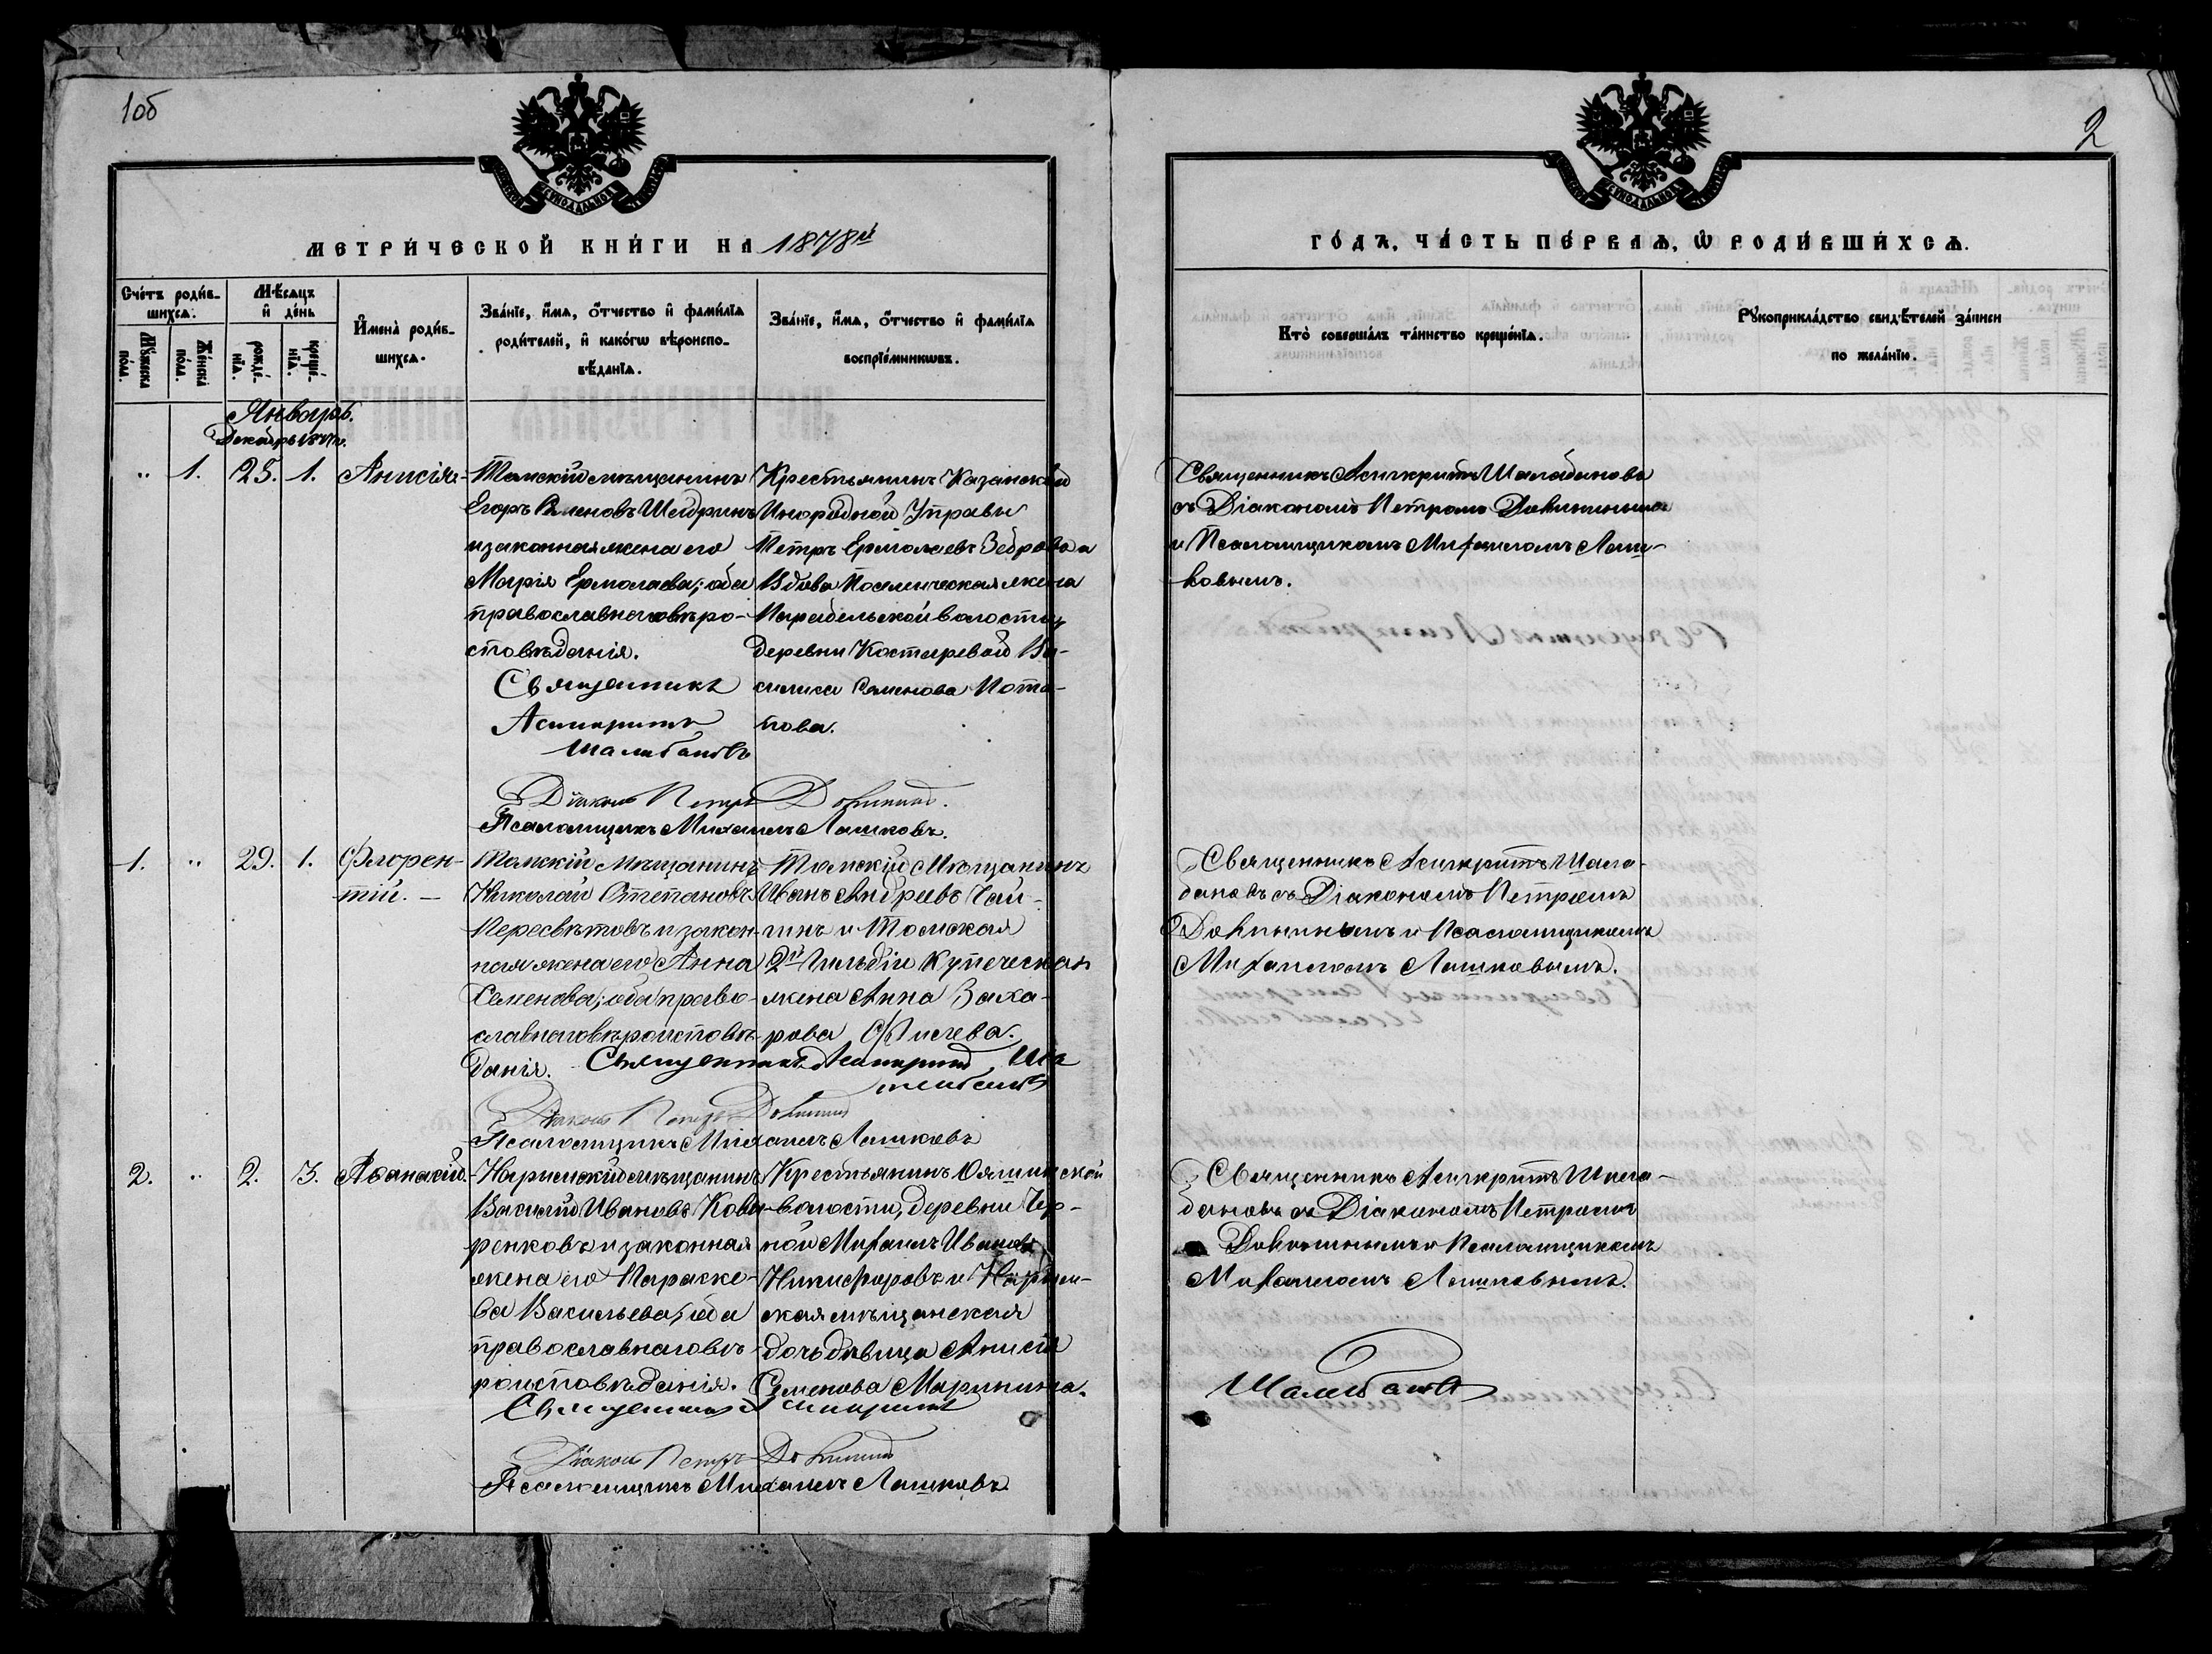 1об
2
МЕТРИЧЕСКОЙ КНИГИ НА 1878й
ГОДЪ, ЧАСТЬ ПЕРВАЯ, Ѡ РОДИВШИХСЯ.
Счетъ родив-
шихся.
Мѣсяцъ
и день
Мужеска
пола.
Женска
пола.
рожде-
нїя.
креще-
нїя.
Имена родив-
шихся.
Званїе, имя, отчество и фамилїя
родителей, и какогѡ вѣроиспо-
вѣданїя.
Званїе, имя, отчество и фамилїя
воспрїемникѡвъ.
Кто совершалъ таинство крещенїя.
Рꙋкоприкладство свидѣтелей записи
по желанїю.
Январь.
Декабрь 1877 г.
" 1. 25. 1. Анисія
Томскій мѣщанинъ
Егоръ Семеновъ Шедринъ
и законная жена его
Марія Ермолаева; оба
православнаго вѣро-
сповѣданія.
Священникъ
Асигкритъ
Шалабановъ
Діаконъ Петръ
Псаломщикъ Михаилъ Лашковъ.
Крестьянинъ Казанской
Инородной Управы
Петръ Ермолаевъ и
Вдова жена
Парабельской волости,
деревни Костаревой Ва-
силиса Семенова Пота-
пова.
Священникъ Асигкритъ Шалабановъ
съ Діакономъ Петромъ
и Псаломщикомъ Михаиломъ Лаш-
ковымъ.
1. " 29. 1. Флорен-
тій. —
Томскій Мѣщанинъ
Николай Степановъ
Пересвѣтовъ и закон-
ная жена его Анна
Семенова; оба право-
славнаго вѣроисповѣ-
данія.
Священникъ Асигкритъ Ша
лабановъ
Діаконъ Петръ
Псаломщикъ Михаилъ Лашковъ
Томскій Мѣщанинъ
Иванъ Андреевъ
и Томская
2й Гильдіи Купеческая
жена Анна Заха-
рова
Священникъ Асигкритъ Шала-
бановъ съ Діакономъ Петромъ
и Псаломщикомъ
Михаиломъ Лашковымъ.
2. " 2. 3. Аѳанасій.
Нарымскій мѣщанинъ
Василій Ивановъ Кова-
ренковъ и законная
жена его Параске-
ва Васильева; оба
православнаго вѣ-
роисповѣданія.
Священникъ Асигкритъ
Діаконъ Петръ
Псаломщикъ Михаилъ Лашковъ
Крестьянинъ
волости, деревни Чер-
ной Михаилъ Ивановъ
Никифоровъ и Нарым-
ская мѣщанская
дочь дѣвица Анисія
Семенова Маринина.
Священникъ Асигкритъ Шала-
бановъ съ Діакономъ Петромъ
и Псаломщикомъ
Михаиломъ Лашковымъ.
Шалабановъ